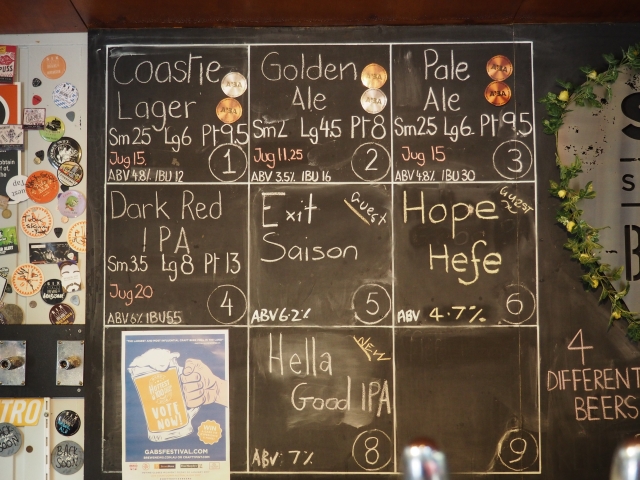 Coastie
Lager
Sm 2.5 Lg 6 Pt 9.5
Jug 15
ABV 4.8% IBU 12
1
Golden
Ale
Sm 2 Lg 4.5 Pt 8
Jug 11.25
ABV 3.5% IBU 16
2
Pale
Ale
Sm 2.5 Lg 6 Pt 9.5
Jug 15
ABV 4.8% IBU 30
3
Dark Red
IPA
Sm 3.5 Lg 8 Pt 13
Jug 20
ABV 6% IBU 55
4
Exit
GUEST
Saison
ABV 6.2%
5
Hope
GUEST
Hefe
ABV 4.7%
6
VOTE
NOW!
GABSFESTIVAL.COM
Hella
NEW
Good IPA
ABV 7%
8
9
4
DIFFERENT
BEERS
TRO
BACK
SOON